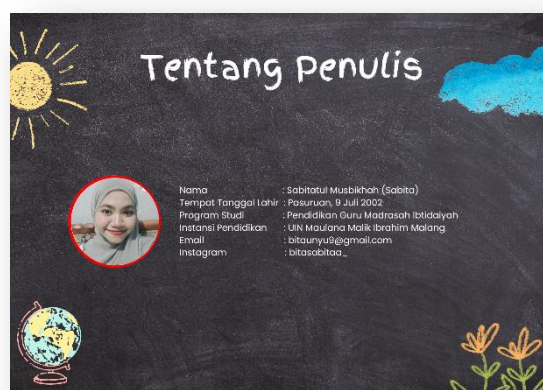 Tentang Penulis
Nama : Sabitatul Musbikhah (Sabita)
Tempat Tanggal Lahir : Pasuruan, 9 Juli 2002
Program Studi : Pendidikan Guru Madrasah Ibtidaiyah
Instansi Pendidikan : UIN Maulana Malik Ibrahim Malang
Email : bitaunyu9@gmail.com
Instagram : bitasabitaa_